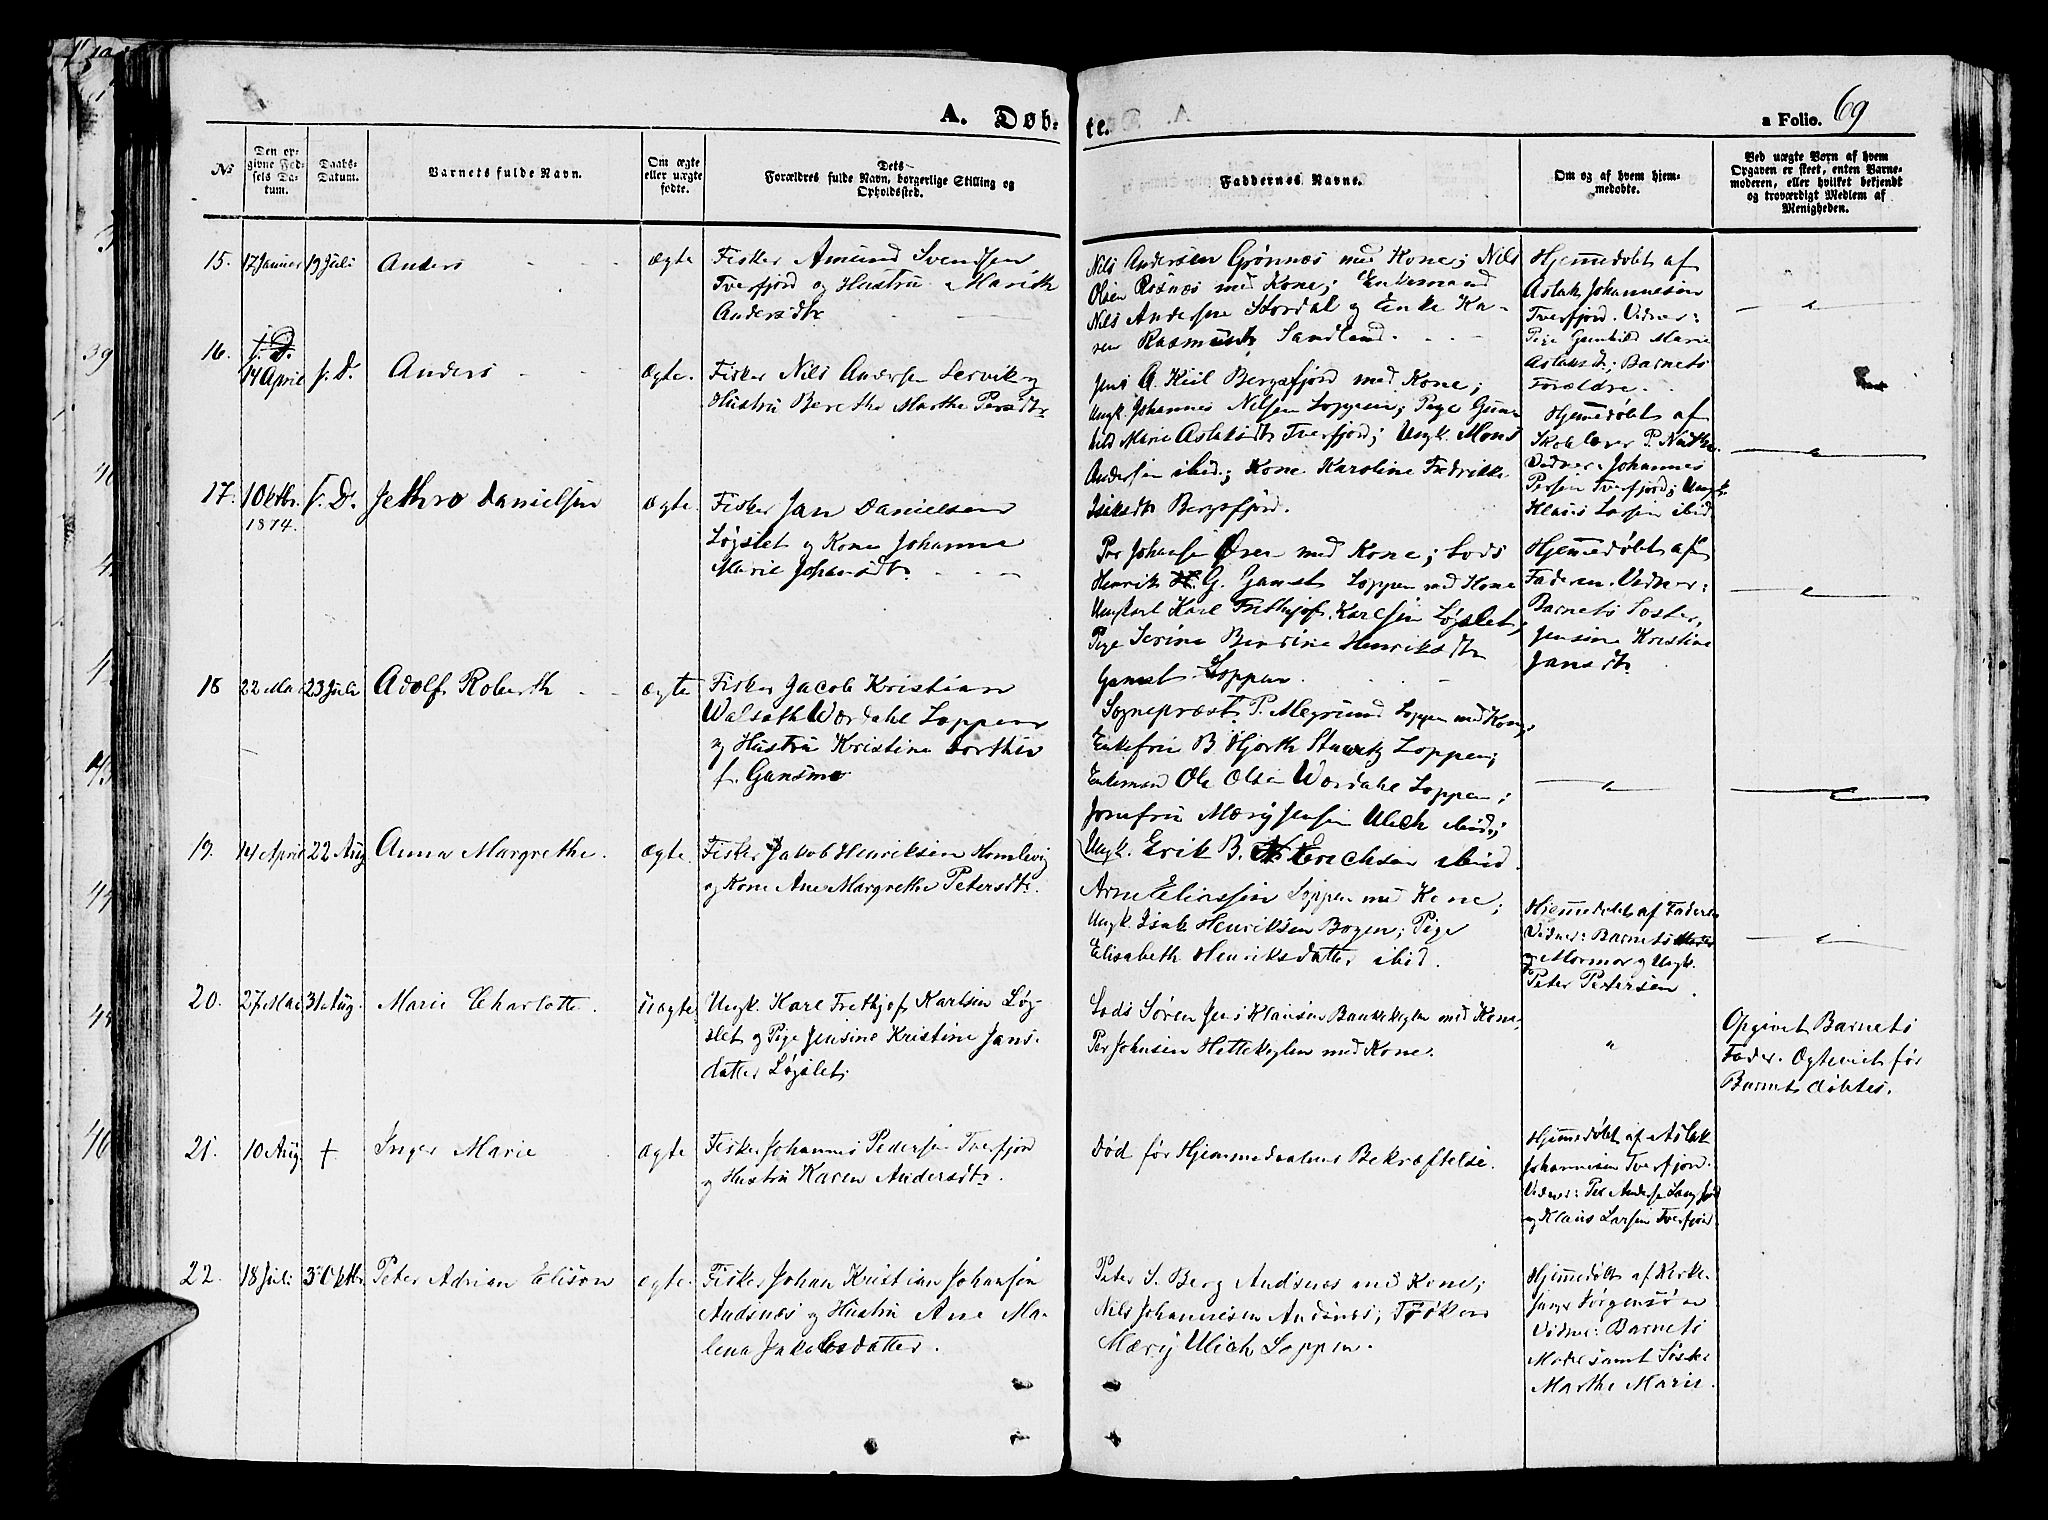 A. Døbte.
a Folio. 69
No
Den opgivne Fødsels Datum.
Daabs-Datum.
Barnets fulde Navn.
Om ægte eller uægte fødte.
Dets Forældres fulde Navn, borgerlige Stilling og Opholdssted.
Faddernes Navne.
Om og af hvem hjemmedøbte.
Ved uægte Børn af hvem Opgaven er skeet, enten Barnemoderen, eller hvilket bekjendt og troværdigt Medlem af Menigheden.
15. 17 Januer 19 Juli Anders ægte
Fisker Amund Svendsen
Tverfjord og Hustru Marith
Andersdtr
Nils Andersen Grønnes med Kone; Nils
Olsen Risnæs med Kone; Enkemand
Nils Andersen Stordal og Enke Ka-
ren Rasmusdtr Sandland.
Hjemmedøbt af
Aslak Johannesen
Tverfjord. Vidner:
Pige Gunhild Marie
Aslaksdtr; Barnets
Forældre.
16. 14 April s. D. Anders ægte.
Fisker Nils Andersen Lervik og
Hustru Berethe Marthe Persdtr
Jens A. Kiil Bergsfjord med Kone;
Ungk. Johannes Nilsen Loppen; Pige Gun-
hild Marie Aslaksdtr Tverfjord; Ungk. Mons
Andersen ibid.; Kone Karoline Fredrikke
Isaksdtr Bergsfjord.
Hjemmedøbt af
Skolelærer P.
Vidner: Johannes
Persen Tverfjord; Ungk.
Klaus Larsen ibid.
17. 1 Oktbr. 1874. s. D. Jethro Danielsen ægte
Fisker Jan Danielsen
Løgslet og Kone Johanne
Marie Johansdtr.
Per Johnsen Øren med Kone; Lods
Henrik G. Gamst Loppen med Kone
Ungkarl Karl Frithjof Karlsen Løgslet;
Pige Serine Bendine Henriksdtr
Gamst Loppen.
Hjemmedøbt af
Faderen. Vidner:
Barnets Søster,
Jensine Kristine
Jansdtr
18 22 Mai 23 Juli Adolf Roberth ægte
Fisker Jacob Kristian
Walsøth Wærdahl Loppen
og Hustru Kristine Dorthea
f. Gansmo
Sognepræst P. Alegrund Loppen med Kone;
Enkefru B Hjorth Stuwitz Loppen;
Enkemand Ole Olsen Wærdahl Loppen;
Jomfru Mæry Jensen Ulich ibid;
Ungk. Erik B. Erichsen ibid.
19. 14 April 22 Aug Anna Margrethe. ægte.
Fisker Jakob Henriksen Komelvig
og Kone Ane Margrethe Petersdtr.
Arne Eliassen Loppen med Kone;
Ungk. Isak Henriksen Bogen; Pige
Elisabeth Henriksdatter ibid.
Hjemmedøbt af Faderen
Vidner: Barnets
og Mormor og Ungk.
Peter Petersen.
20. 27 Mai 31 Aug. Marie Charlotte. Uægte
Ungk. Karl Frethjof Karlsen Løg-
slet og Pige Jensine Kristine Jans-
datter Løgslet;
Lods Søren Jens Klausen Bankekeglen med Kone,
Per Johnsen Hettekeglen med Kone.
"
Opgivet Barnets
Fader. Ogteviet før
Barnet døbtes.
21. 10 Aug + Inger Marie ægte
Fisker Johannes Pedersen Tverfjord
og Hustru Karen Andersdtr.
Død før Hjemmedaabens Bekræftelse.
Hjemmedøbt af Aslak
Johannesen Tverfjord.
Vidner: Per Andersen Langfjord
og Klaus Larsen Tverfjord.
22. 18 Juli 3 Oktbr. Peter Adrian Elison ægte.
Fisker Johan Kristian Johansen
Andsnæs og Hustru Ane Ma-
lena Jakobsdatter.
Peter S. Berg Andsnæs med Kone;
Nils Johannesen Andsnæs; Frøken
Mæry Ulich Loppen.
Hjemmedøbt af Kirke-
sanger Jørgensøn
Vidner: Barnets
Moder samt Søster
Marthe Marie.
39